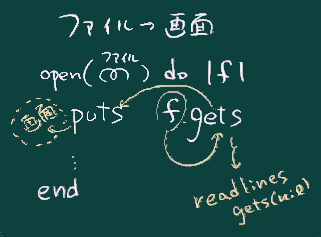 ファイル→画面
ファイル
open( ) do |f|
画面 puts f.gets
⋮
end
readlines
gets(nil)